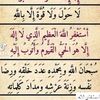 لَا حَوْلَ وَلَا قُوَّةَ إِلَّا بِاللَّهِ
أَسْتَغْفِرُ اللَّهَ الْعَظِيمَ الَّذِي لَا إِلَهَ
إِلَّا هُوَ الْحَيَّ الْقَيُّومَ وَأَتُوبُ إِلَيْهِ
سُبْحَانَ اللَّهِ وَبِحَمْدِهِ عَدَدَ خَلْقِهِ وَرِضَا
نَفْسِهِ وَزِنَةَ عَرْشِهِ وَمِدَادَ كَلِمَاتِهِ